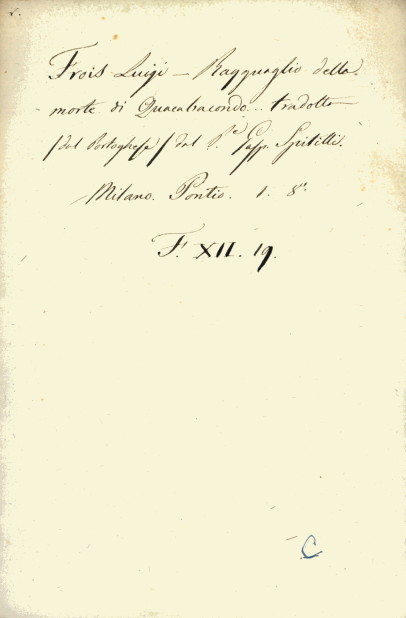 Frois Luigi — Ragguaglio della
morte di Quacabacondo... tradotto
(dal Portoghese) dal P.e Gasp. Spitilli.
Milano. Pontio. 1. 8°.
F. XII. 19.
C